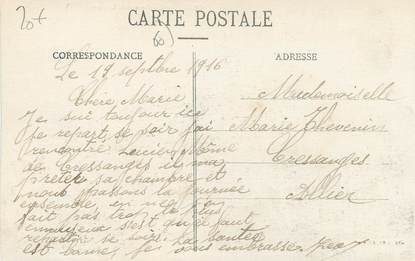 20+
CARTE POSTALE
60
CORRESPONDANCE
ADRESSE
Le 19 septbre 1916
Chère Marie
Je sui toujour ici
je repart se soir j'ai
rencontré Lucien
de Cressanges il ma
prêter sa chambre et
nous passons la journée
ensemble, en ne
fait pas trop le plus
ennuyeux s'est qu'il faut
repartir se soir. La santée
est bonne, je vous embrasse
Mademoiselle
Marie Thevenin
Cressanges
Allier